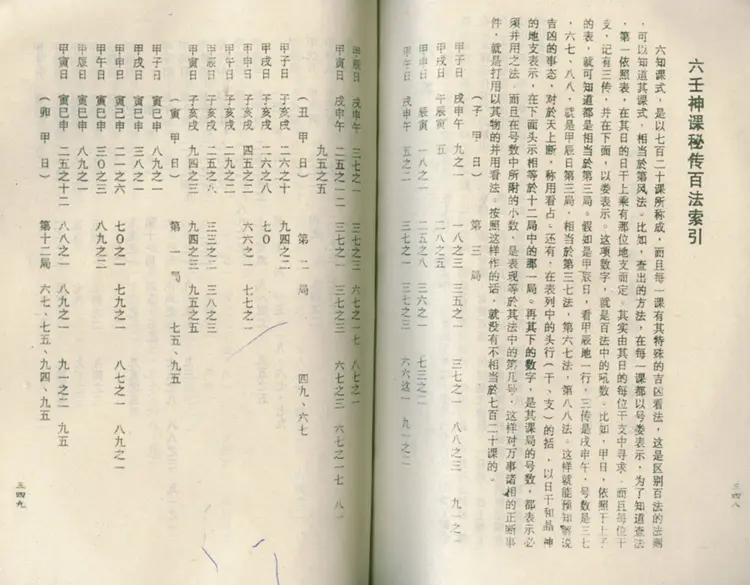 六壬神课秘传百法索引
六知课式，是以七百二十课所称成，而且每一课有其特殊的吉凶看法，这是区别百法的法则
，可以知道其课式，相当於第风法。比如，查出的方法，在每一课都以号娄表示，为了知道查法
，第一依照表，在其日的日干上乘有那位地支而定。其实由其日的每位干支中寻求。而且每位干
支，记有三传，并在下面，以娄表示。这项数字，就是百法中的吼数。比如，甲日，依照干上子
的表，就可知道都是相当於第三局。假如是甲辰日，看甲辰地一行，三传是戌申午，号数是三七
，六七、八八，就是甲辰日第三局，相当於第三七法，第六七法，第八八法。这样就能预知解说
吉凶的事态，对於天上断，称用看占。还有，在表列中的头行（干、支）的括，以日干和晶神
的地支表示，在下面头示相等於十二局中的那一局。再其下的数字，是其课局的号数，都表示必
须并用之法。而且在号数中所附的小数，是表现等於其法中的第几号，这样对万事诸相的正断事
件，就是打用以其物的并用看法。按照这样作的话，就没有不相当於七百二十课的。
（子 甲 日） 第 三 局
甲子日 戌申午 九之一 一八之三 三五之一 三七之一 八八之三 九一之二
甲戌日 午辰寅 五 二八之五
甲申日 辰寅 一八之一 二五之八 三六之一 七三之一
甲午日 戌申午 五之二 三七之一 三七之三 六六这一 九一之一
三四八
甲辰日 戌申午 三七之一 三七之三 六七之一七 八七之一
甲寅日 戌申午 二五之一二 三七之一 三七之三 六七之三 六七之一七 八一
九五之五
（丑 甲 日） 第 二 局
甲子日 子亥戌 二六之十 九四之二 四九、六七
甲戌日 子亥戌 二六之八 七〇
甲申日 子亥戌 二九之二 六六之一 七七之一
甲午日 子亥戌 五之二
甲辰日 子亥戌 二五之八 三三之二 三八之三
甲寅日 子亥戌 九四之三 九四之三 九五之五
（寅 甲 日） 第 一 局 七五、九五
甲子日 寅巳申 八九之一
甲戌日 寅巳申 三八之一
甲申日 寅巳申 二一之六 七〇之一 七九之一 八七之一 八九之一
甲午日 寅巳申 三〇之三 八九之二
甲辰日 寅巳申
甲寅日 寅巳申 二五之十二 八八之一 八九之一 九一之二 九五
（卯 甲 日） 第十二局 六七、七五、九四、九五
三四九